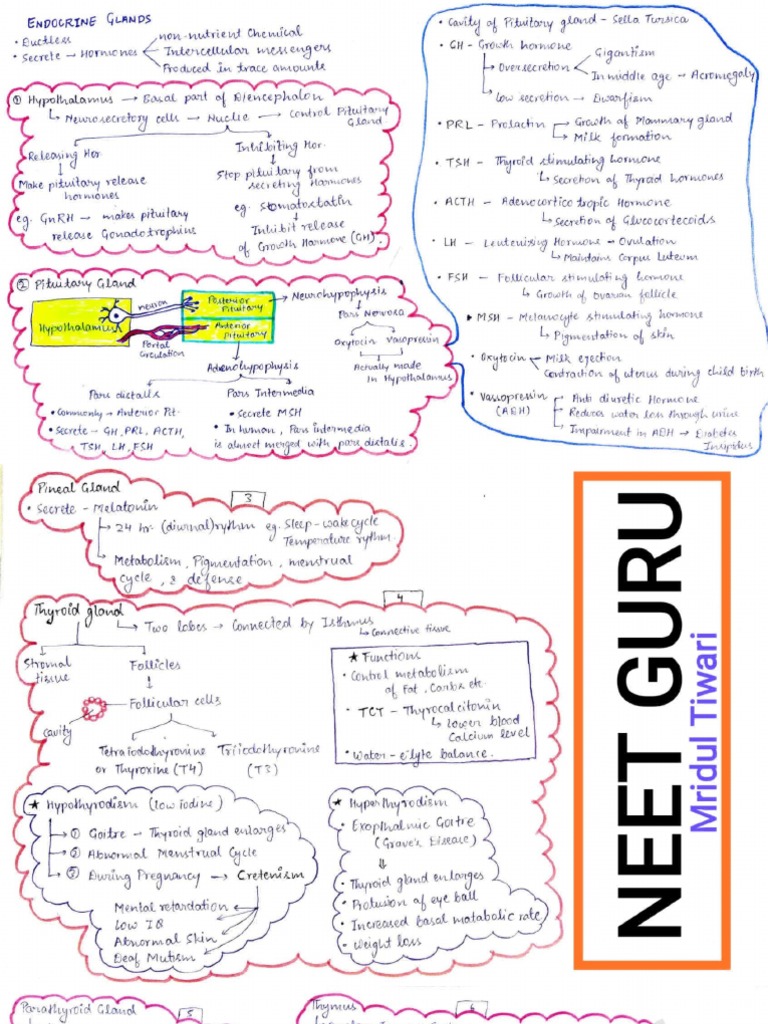 ENDOCRINE GLANDS
• Ductless
• Secrete → Hormones
non-nutrient Chemical
Intercellular messengers
Produced in trace amounts
① Hypothalamus → Basal part of Diencephalon
↳ Neurosecretory cells → Nuclie → Control Pituitary
Gland
Releasing Hor.
↓
Make pituitary release
hormones
eg. GnRH → makes pituitary
release Gonadotrophins
Inhibiting Hor.
↓
Stop pituitary from
secreting Harmones
eg. Stomatostatin
↓
Inhibit release
of Growth Harmone (GH).
② Pituitary Gland
Hypothalamus
neuron
Portal
Circulation
Posterior
Pituitary
Anterior
Pituitary
→ Neurohypophysis
Pars Nervosa
Oxytocin Vasopressin
Actually made
in Hypothalamus
Adenohypophysis
Pars distalis
• Commonly → Anterior Pit.
• Secrete – GH, PRL, ACTH,
TSH, LH, FSH
Pars Intermedia
• Secrete MSH
• In human, Pars intermedia
is almost merged with pars distalis.
• Cavity of Pituitary gland – Sella Tursica
• GH – Growth hormone
→ Oversecretion
Gigantism
In middle age → Acromegaly
→ Low secretion → Dwarfism
• PRL – Prolactin
→ Growth of Mammary gland
→ Milk formation
• TSH – Thyroid stimulating hormone
↳ Secretion of Thyroid hormones
• ACTH – Adenocortico tropic Hormone
↳ Secretion of Glucocortecoids
• LH – Leutenizing Hormone → Ovulation
↳ Maintains Corpus Luteum
• FSH – Follicular stimulating hormone
↳ Growth of ovarian follicle
• MSH – Melanocyte stimulating hormone
↳ Pigmentation of skin
• Oxytocin
Milk ejection
Contraction of uterus during child birth
• Vassopressin
(ADH)
Anti diuretic Hormone
Reduces water loss through urine
Impairment in ADH → Diabetes
Insipidus
Pineal Gland
3
• Secrete – Melatonin
→ 24 hr. (diurnal) rythm eg. Sleep-wake cycle
Temperature rythm.
→ Metabolism, Pigmentation, menstrual
cycle, & defense
4
Thyroid gland
↳ Two lobes → Connected by Isthmus
↳ Connective tissue
Stromal
tissue
Follicles
↓
Follicular cells
cavity
Tetraiodothyronine
or Thyroxine (T4)
Triiodothyronine
(T3)
★ Functions
• Control metabolism
of Fat, Carbs etc.
• TCT – Thyrocalcitonin
↳ Lower blood
Calcium level
• Water – e'lyte balance.
★ Hypothyrodism (low iodine)
→ ① Goitre → Thyroid gland enlarges
→ ② Abnormal Menstrual Cycle
→ ③ During Pregnancy → Cretenism
Mental retardation
Low IQ
Abnormal Skin
Deaf Mutism
★ Hyperthyrodism
• Exopthalmic Goitre
(Grave's Disease)
⇓
• Thyroid gland enlarges
• Protusion of eye ball
• Increased basal matabolic rate
• Weight loss
NEET GURU
Mridul Tiwari
Parathyroid Gland
5
Thymus
6